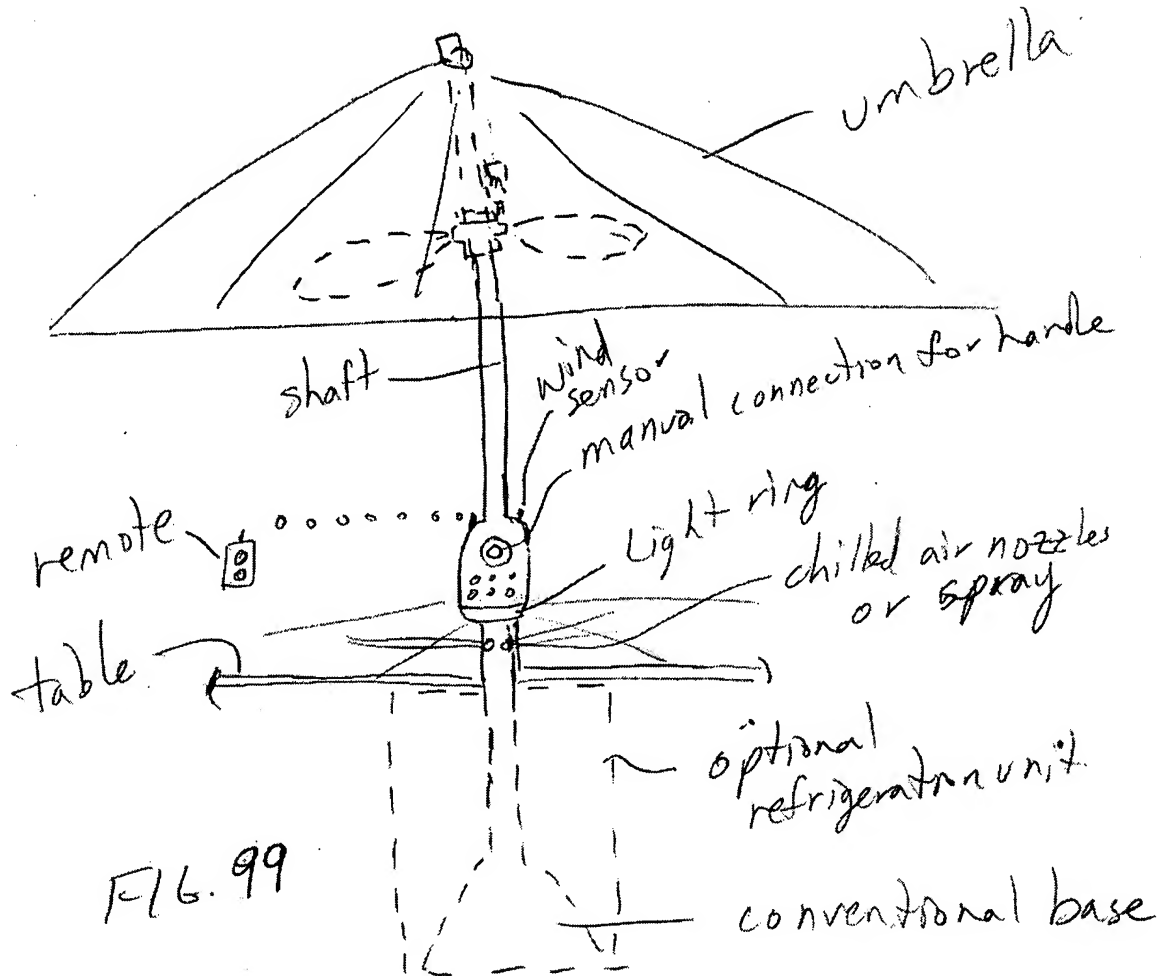 umbrella
shaft
wind
sensor
manual connection for handle
Light ring
remote
chilled air nozzles
or spray
table
optional
refrigeration unit
FIG. 99
conventional base